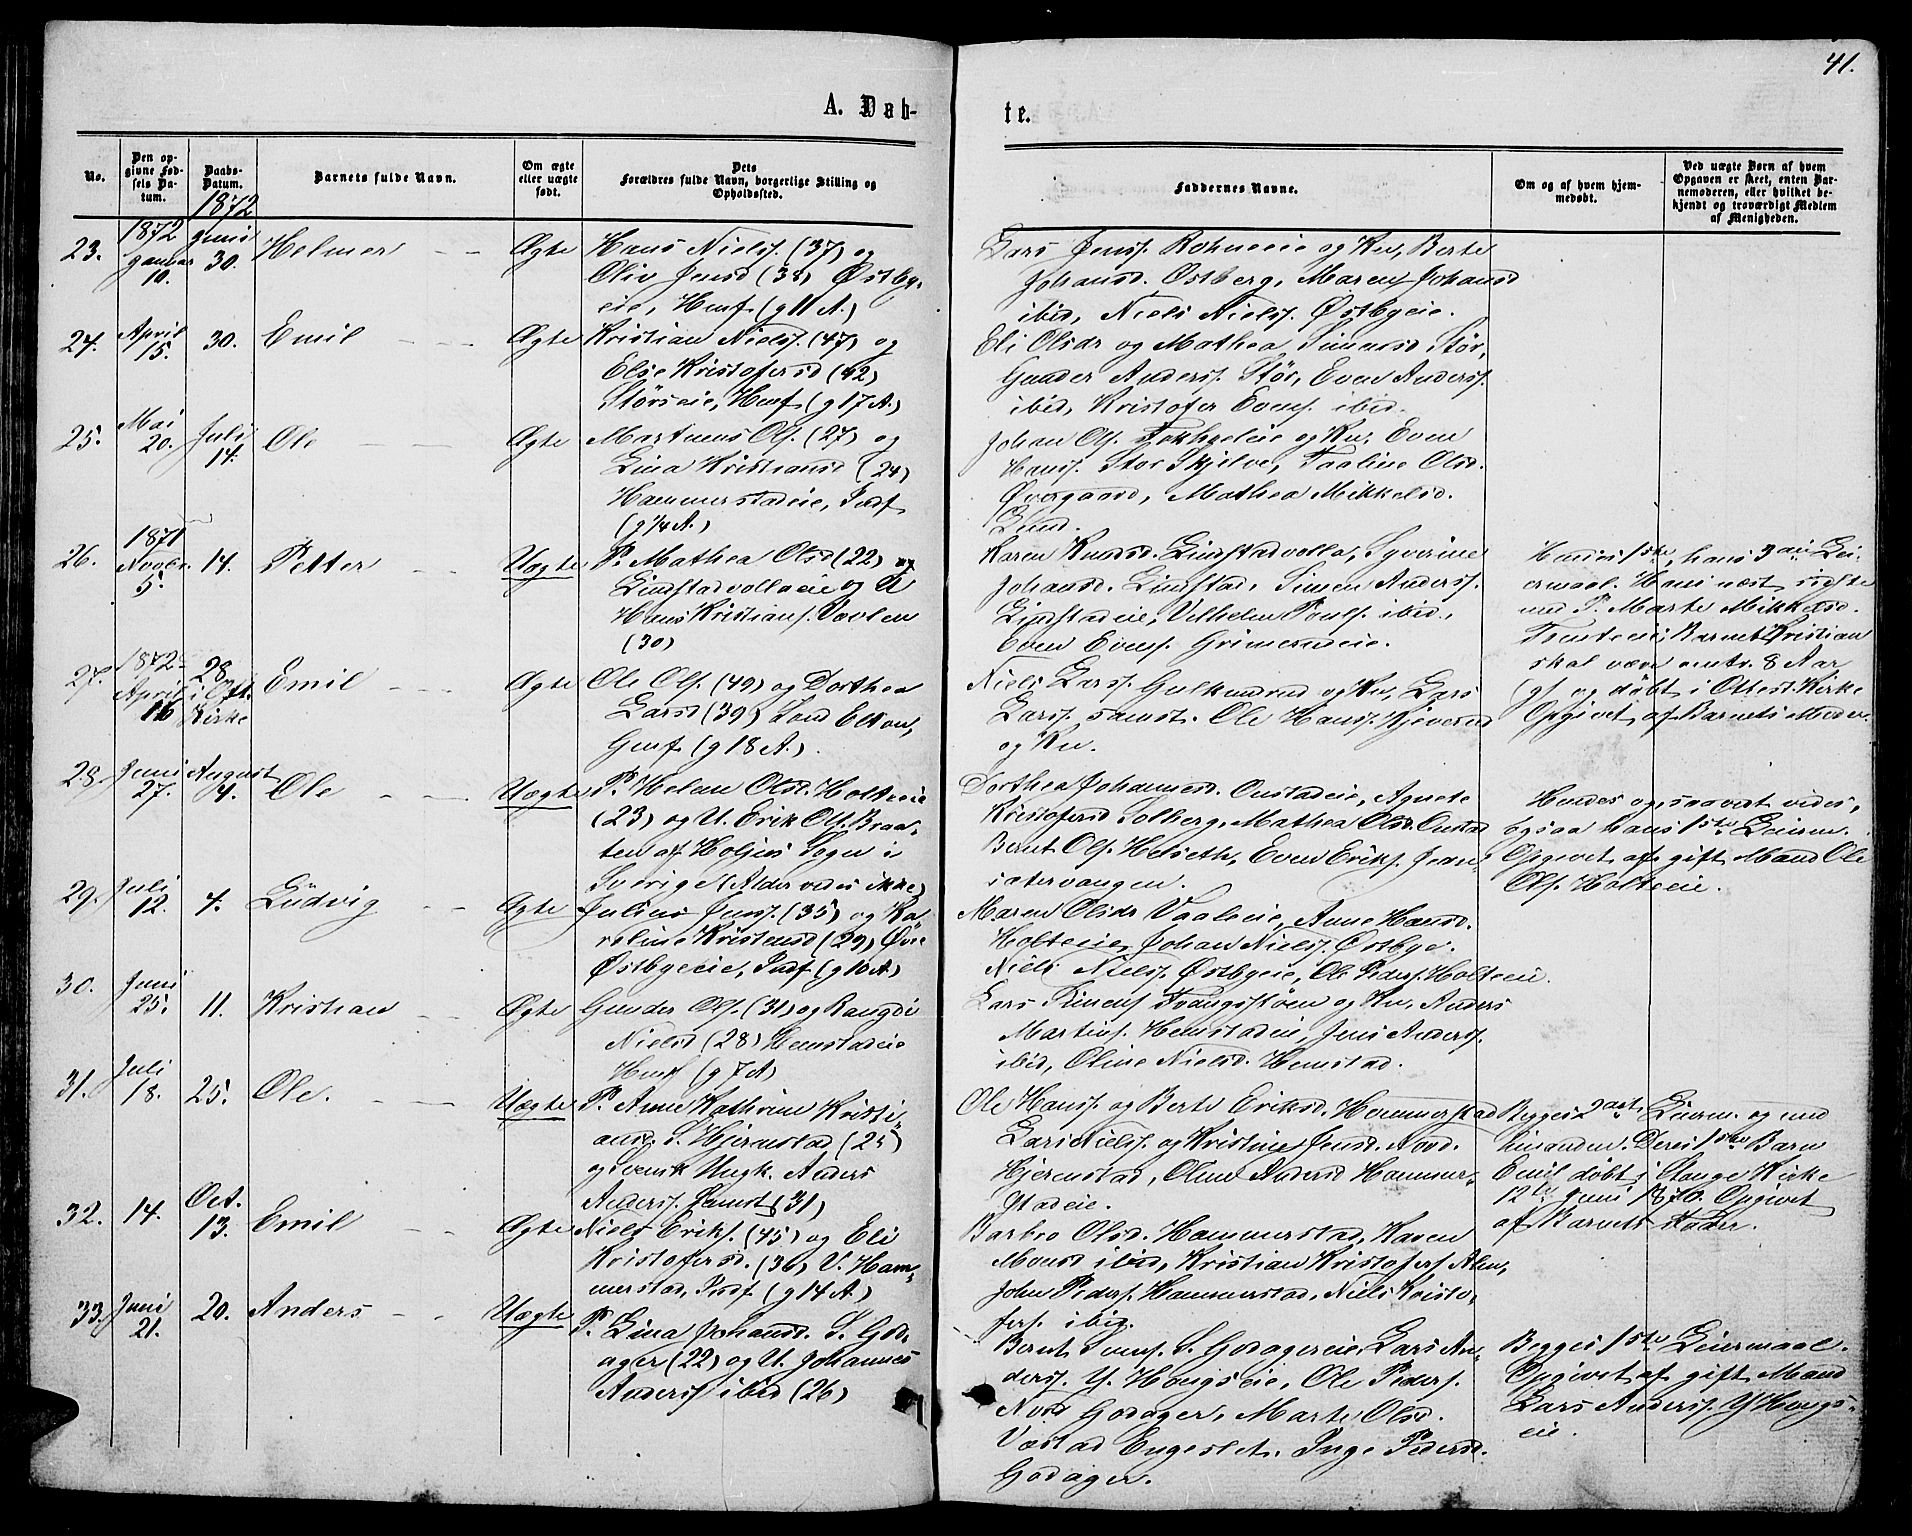 41.
A. Døb-
te.
No.
Den op-
givne Fød-
sels Da-
tum.
Daabs-
Datum.
Barnets fulde Navn.
Om ægte
eller uægte
født.
Dets
Forældres fulde Navn, borgerlige Stilling og
Opholdssted.
Faddernes Navne.
Om og af hvem hjem-
medøbt.
Ved uægte Børn af hvem
Opgaven er skeet, enten Bar-
nemoderen, eller hvilket be-
kjendt og troværdigt Medlem
af Menigheden.
1872
23.
1872
Januar
10.
Juni
30.
Helmer
Ægte
Hans Nielss. (37) og
Oliv Jensd (38) Østby-
eie, Husf (g 11 A.)
Lars Jenss. Rohneeie og Ku, Berte
Johansd. Ostberg, Maren Johansd
ibid, Niels Nielss. Østbyeie.
24.
April
15.
30.
Emil
Ægte
Kristian Nielss. (47) og
Else Kristofersd (42)
Størseie, Husf (g 17 A.)
Eli Olsdr og Mathea Simensd Stør,
Gunder Anderss. Stør, Even Anderss.
ibid, Kristofer Evens. ibid.
25.
Mai
20.
Juli
14.
Ole
Ægte
Martinus Ols. (27) og
Lina Kristiansd (24)
Hammerstadeie, Indf
(g 1/4 A.)
Johan Ols. eie og Ku, Even
Hanss. Stor Skjelve, Taaline Olsd.
Øvergaard, Mathea Mikkelsd.
Lund.
26.
1871
Novbr.
5.
14.
Petter
Uægte
P. Mathea Olsd (22)
Lindstadvollaeie og U
Hans Kristians. Vaalen
(30)
Karen Knudsd. Lindstadvolla, Syverine
Johansd. Lindstad, Simen Anderss.
Lindstadeie, Vilhelm Pouls. ibid,
Even Evens. Grimerudeie.
Hendes 1ste, hans 3die Lei-
ermaal. Hans næst sidste
med P. Marte Mikkelsd.
Barnet Kristian
skal være omtr. 8 Aar
gl og døbt i Ottest. Kirke
Opgivet af Barnets Moder.
27.
1872
April
16
28
i Ott.
Kirke
Emil
Ægte
Ole Ols. (49) og Dorthea
Larsd (39) Sond Elton,
Gmf (g 18 A.)
Niels Larss. Gulknudrud og Ku, Lars
Larss. samst. Ole Hanss. Kjeverud
og Ku.
28.
Juni
27.
August
4.
Ole
Uægte
P. Helene Olsd. Holteeie
(23) og U. Erik Ols. Braa-
ten af Holjes Sogn i
Sverige (Alder vides ikke)
Dorthea Johannesd. Onstadeie, Agnete
Kristofersd Solberg, Mathea Olsd. Onstad
Bernt Ols. Helseth, Even Eriks. Jøns-
sætervangen.
Hendes og, saavidt vides,
ogsaa hans 1ste Leierm.
Opgivet af gift Mand Ole
Ols. Holteeie.
29.
Juli
12.
4.
Ludvig
Ægte
Julius Jenss. (35) og Ka-
roline Kristensd (29) Øvre
Østbyeie, Indf. (g 10 A)
Maren Olsdr Vaaleeie, Anne Hansd.
Holteeie, Johan Nielss. Østbye.
Niels Nielss. Østbyeie, Ole Peders. Holteeie.
30.
Juni
25.
11.
Kristian
Ægte
Gunder Ols. (31) og Rangdi
Nielsd (28) Hemstadeie
Husf (g 7 A)
Lars Simens. Trangsstøen og Ku, Anders
Martins. Hemstadeie, Jens Anderss.
ibid, Oline Nielsd. Hemstad.
31.
Juli
18.
25.
Ole.
Uægte
P. Anne Kathrine Kristi-
ansd. S. Hjernstad (25)
og svensk Ungk. Anders
Anderss. samst (31)
Ole Hanss. og Berte Eriksd. Hammerstad
Lars Nielss. og Kristine Jensd. Nord.
Hjernstad, Oline Andersd Hammer-
stadeie.
Begges 2det Leierm. og med
hinanden. Deres 1ste Barn
Emil døbt i Stange Kirke
12te Juni 1870. Opgivet
af Barnets Fader.
32.
14.
Oct.
13.
Emil
Ægte
Niels Eriks. (45) og Eli
Kristofersd. (36) V. Ham-
merstad, Indf. (g 14 A.)
Barbro Olsd. Hammerstad, Karen
Monsd ibid, Kristian Kristofers. Alm,
John Peders. Hammerstad, Niels Kristo-
fers. ibid.
33.
Juni
21.
20.
Anders
Uægte
P. Lina Johansd. S. God-
ager (22) og U. Johannes
Anderss ibid (26)
Bernt Jenss. S. Godagereie, Lars An-
derss. Y. Hougseie, Ole Peders.
Nord Godager, Marte Olsd.
Vestad Engeslet, Inge Pedersd.
Godager.
Begges 1ste Leiermaal.
Opgivet af gift Mand
Lars Anderss. Y Hougs-
eie.